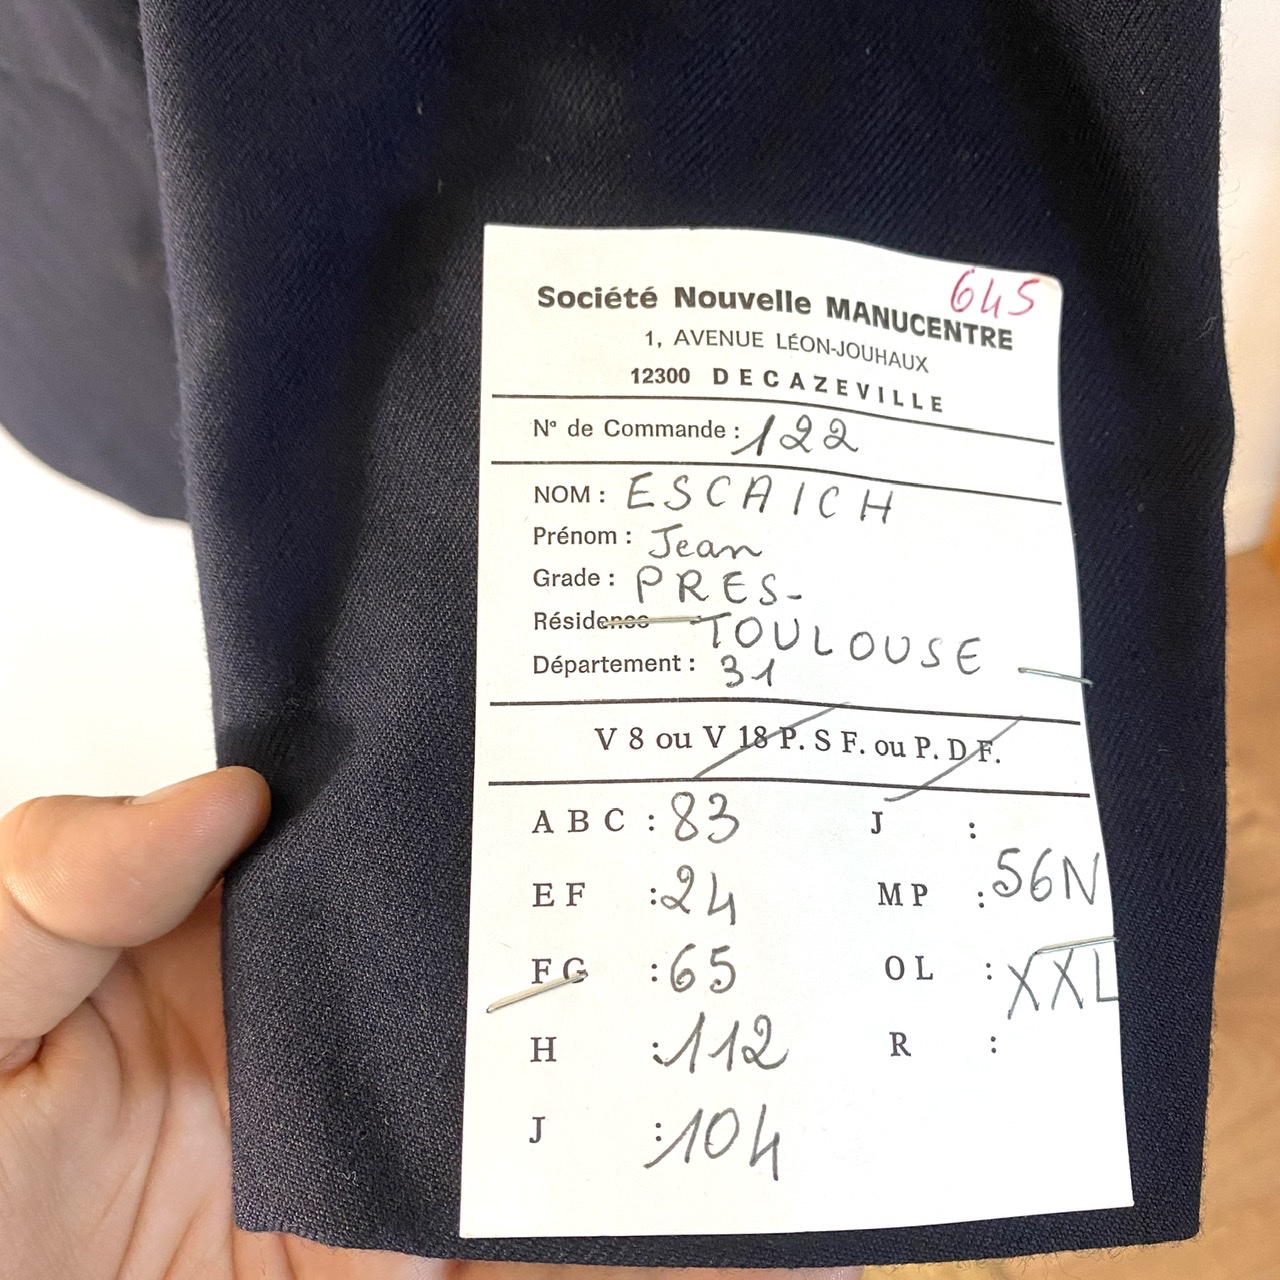 645
Société Nouvelle MANUCENTRE
1, AVENUE LÉON-JOUHAUX
12300 DECAZEVILLE
N° de Commande : 122
NOM : ESCAICH
Prénom : Jean
Grade : PRES-
Résidence TOULOUSE
Département : 31
V 8 ou V 18 P. S F. ou P. D F.
A B C : 83 J :
E F : 24 M P : 56N
F G : 65 O L : XXL
H : 112 R :
J : 104